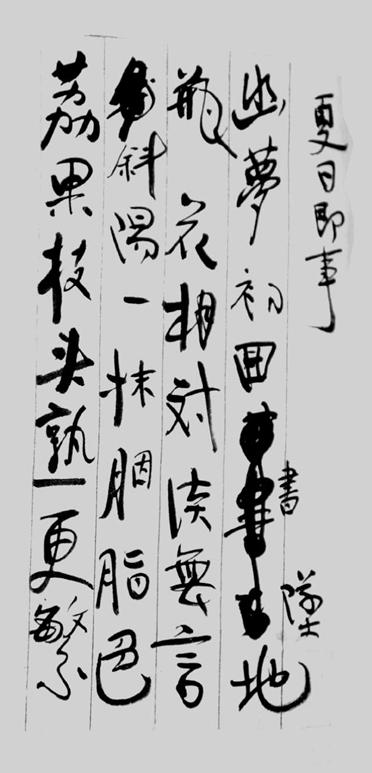 夏日即事
幽夢初回書墜地
瓶花相対淡無言
斜陽一抹胭脂色
荔果枝头熟更繁